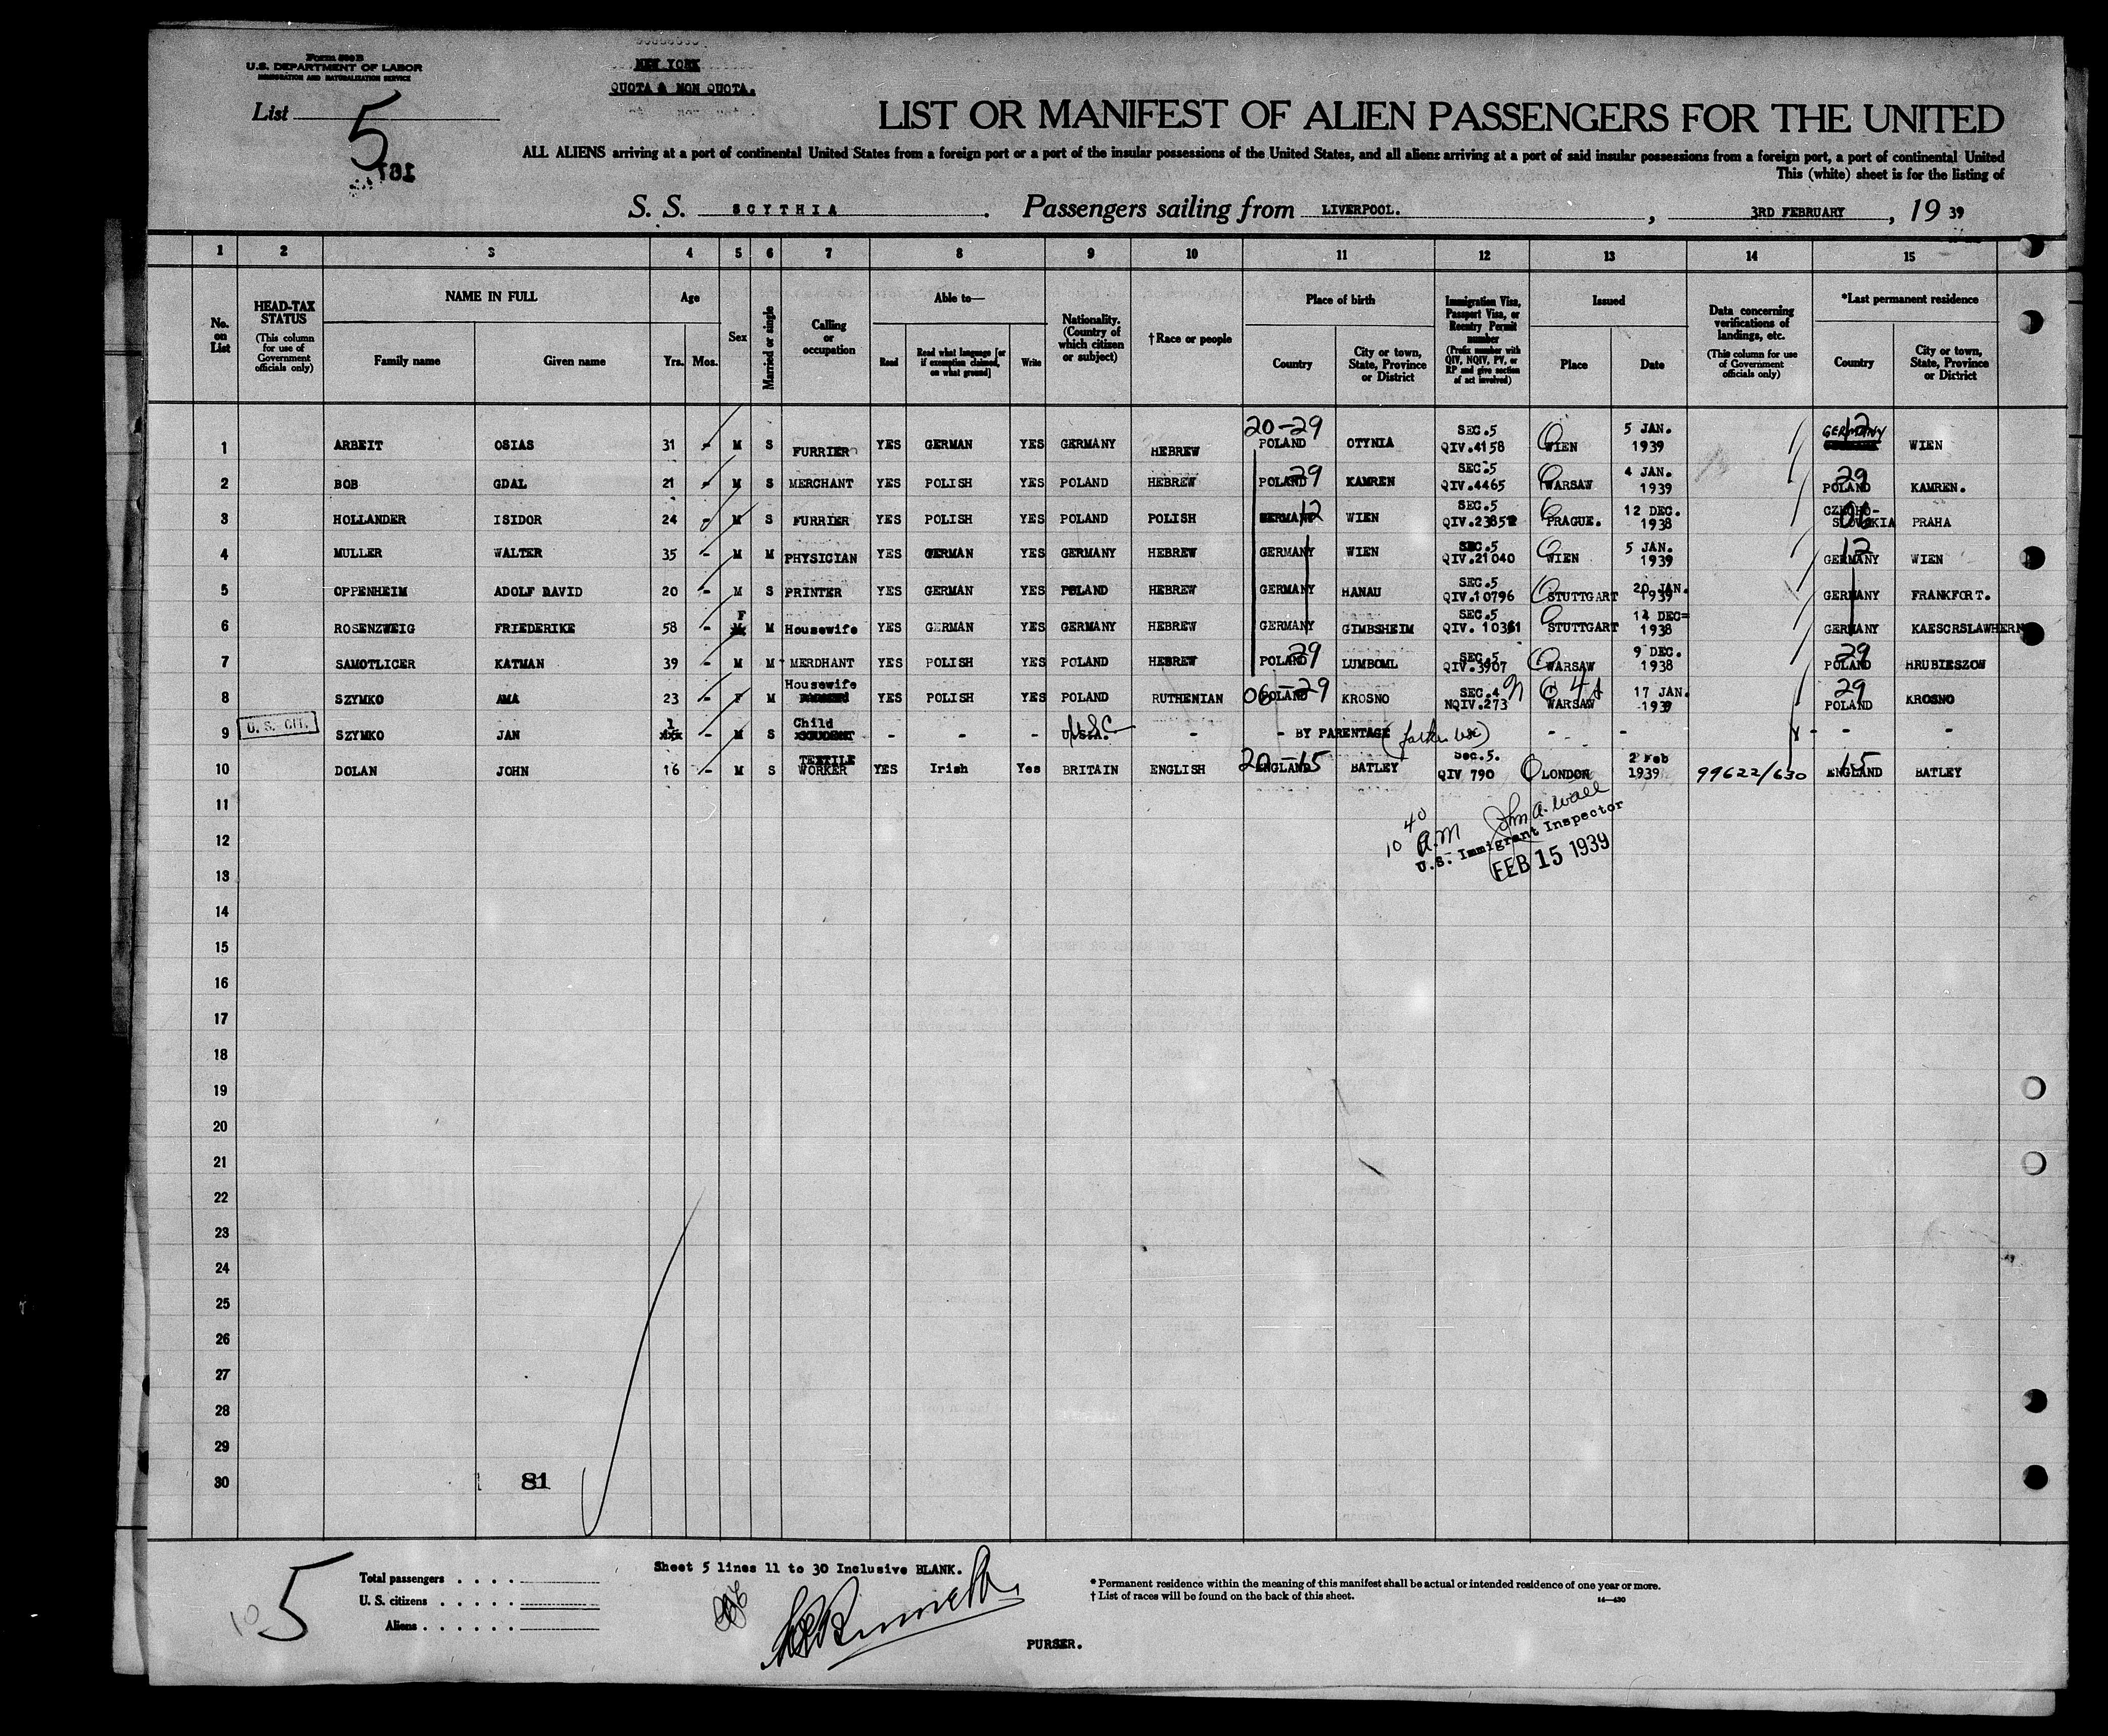 Form 500 B
U.S. DEPARTMENT OF LABOR
IMMIGRATION AND NATURALIZATION SERVICE
NEW YORK
QUOTA & NON QUOTA.
List 5
LIST OR MANIFEST OF ALIEN PASSENGERS FOR THE UNITED
ALL ALIENS arriving at a port of continental United States from a foreign port or a port of the insular possessions of the United States, and all aliens arriving at a port of said insular possessions from a foreign port, a port of continental United
This (white) sheet is for the listing of
S. S. SCYTHIA . Passengers sailing from LIVERPOOL. , 3RD FEBRUARY , 19 39
1 2 3 4 5 6 7 8 9 10 11 12 13 14 15
No. on List
HEAD-TAX STATUS
(This column for use of Government officials only)
NAME IN FULL
Family name Given name
Age
Yrs. Mos.
Sex
Married or single
Calling or occupation
Able to—
Read Read what language [or if exemption claimed, on what ground] Write
Nationality. (Country of which citizen or subject)
†Race or people
Place of birth
Country City or town, State, Province or District
Immigration Visa, Passport Visa, or Reentry Permit number
(Prefix number with QIV, NQIV, PV, or RP and give section of act involved)
Issued
Place Date
Data concerning verifications of landings, etc.
(This column for use of Government officials only)
*Last permanent residence
Country City or town, State, Province or District
1 ARBEIT OSIAS 31 - M S FURRIER YES GERMAN YES GERMANY HEBREW 20-29 POLAND OTYNIA SEC.5 QIV.4158 WIEN 5 JAN. 1939 GERMANY 12 WIEN
2 BOB GDAL 21 - M S MERCHANT YES POLISH YES POLAND HEBREW POLAND 29 KAMREN SEC.5 QIV.4465 WARSAW 4 JAN. 1939 29 POLAND KAMREN.
3 HOLLANDER ISIDOR 24 - M S FURRIER YES POLISH YES POLAND POLISH GERMANY 12 WIEN SEC.5 QIV.23852 PRAGUE. 12 DEC. 1938 CZECHO-SLOVAKIA 06 PRAHA
4 MULLER WALTER 35 - M M PHYSICIAN YES GERMAN YES GERMANY HEBREW GERMANY WIEN SEC.5 QIV.21040 WIEN 5 JAN. 1939 12 GERMANY WIEN
5 OPPENHEIM ADOLF DAVID 20 - M S PRINTER YES GERMAN YES POLAND HEBREW GERMANY HANAU SEC.5 QIV.10796 STUTTGART 20 JAN. 1939 GERMANY FRANKFORT.
6 ROSENZWEIG FRIEDERIKE 58 - F M Housewife YES GERMAN YES GERMANY HEBREW GERMANY GIMBSHEIM SEC.5 QIV. 10361 STUTTGART 14 DEC= 1938 GERMANY KAESCRSLAWHERN
7 SAMOTLICER KATMAN 39 - M M MERDHANT YES POLISH YES POLAND HEBREW POLAND 29 LUMBOML SEC.5 QIV.3907 WARSAW 9 DEC. 1938 29 POLAND HRUBIESZOW
8 SZYMKO AMA 23 - F M Housewife YES POLISH YES POLAND RUTHENIAN 06-29 POLAND KROSNO SEC.4 NQIV.273 WARSAW 17 JAN. 1939 29 POLAND KROSNO
U. S. CIT.
9 SZYMKO JAN 1 - M S Child - - - U.S.A. USC - - BY PARENTAGE (father USC) - - - -
10 DOLAN JOHN 16 - M S TEXTILE WORKER YES Irish Yes BRITAIN ENGLISH 20-15 ENGLAND BATLEY Sec.5. QIV 790 LONDON 2 Feb 1939 99622/630 15 ENGLAND BATLEY
11
10 40 A.M John A. Wall
12
U.S. Immigrant Inspector
FEB 15 1939
13
14
15
16
17
18
19
20
21
22
23
24
25
26
27
28
29
30
81
Sheet 5 lines 11 to 30 Inclusive BLANK.
5
Total passengers . . . .
U. S. citizens . . . . .
Aliens . . . . . .
PURSER.
* Permanent residence within the meaning of this manifest shall be actual or intended residence of one year or more.
† List of races will be found on the back of this sheet.
14—430